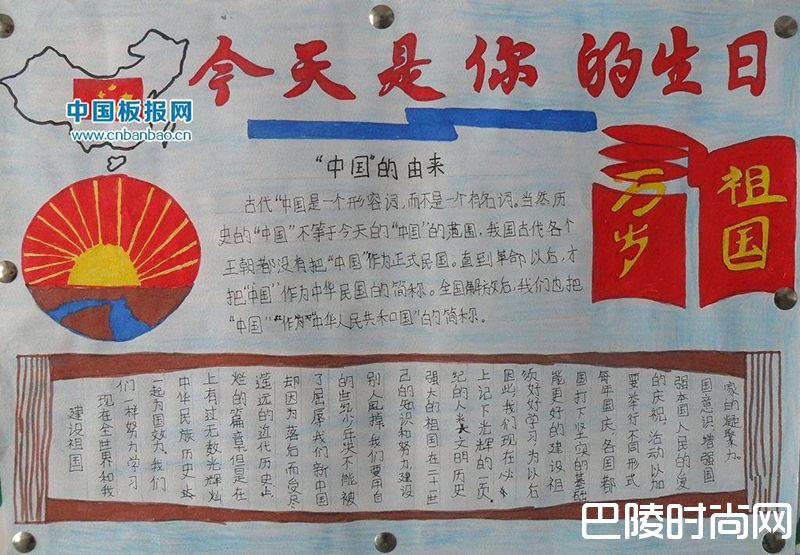 今天是你的生日
中国板报网
www.cnbanbao.cn
"中国"的由来
古代"中国是一个形容词,而不是一个有名词。当然历
史的"中国"不等于今天的"中国"的范围,我国古代各个
王朝都没有把"中国"作为正式民国。直到革命以后,才
把"中国"作为中华民国的简称。全国解放后,我们也把
"中国"作为"中华人民共和国"的简称。
祖国
万岁
建设祖国
现在全世界和我
们一样努力学习
一起为国效力。我们
中华民族历史
上有过无数光辉灿
烂的篇章但是在
遥远的近代历史上
却因为落后而受尽
了屈辱我们新中国
的世纪少年决不能被
别人乱操我们要用自
己的知识和努力建设
强大的祖国在二十一世
纪的人类文明历史
上记下光辉的一页。
因此我们现在必
须好好学习为以后
能更好的建设祖
国打下坚实的基础
每年国庆各国都
要举行不同形式
的庆祝活动以加
强本国人民的爱
国意识增强国
家的凝聚力。
巴陵时尚网